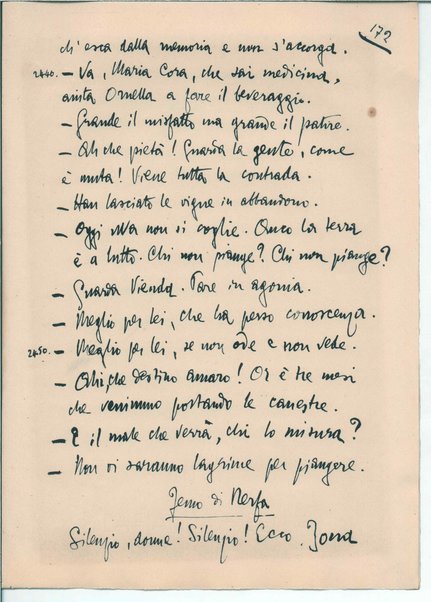 172
ch'esca dalla memoria e non s'accorga.
2440. — Va, Maria Cora, che sai medicina,
aiuta Ornella a fare il beveraggio.
— Grande il misfatto ma grande il patire.
— Ah che pietà! Guarda la gente, come
è muta! Viene tutta la contrada.
— Han lasciato le vigne in abbandono.
— Oggi uva non si coglie. Anco la terra
è a lutto. Chi non piange? Chi non piange?
— Guarda Vienda. Pare in agonia.
— Meglio per lei, che ha perso conoscenza.
2450. — Meglio per lei, se non ode e non vede.
— Ahi, che destino amaro! Or è tre mesi
che venimmo portando le canestre.
— E il male che verrà, chi lo misura?
— Non vi saranno lagrime per piangere.
Jenno di Nerfa
Silenzio, donne! Silenzio! Ecco Jona